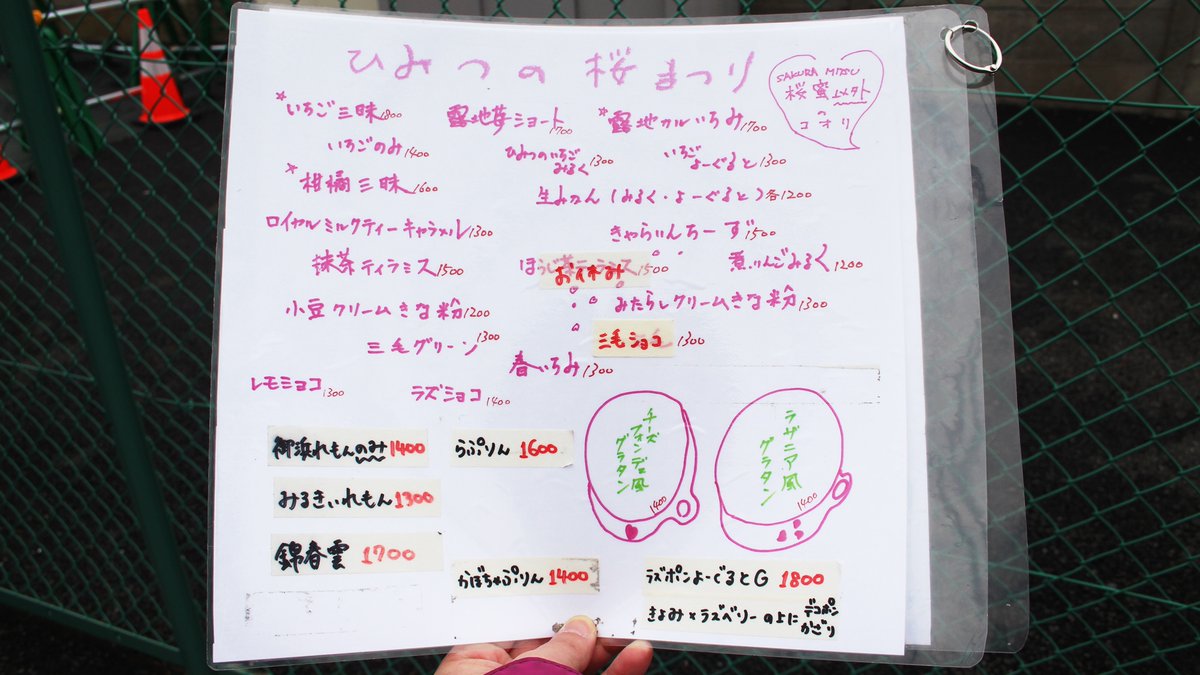 ひみつの桜まつり
SAKURA MITSU
桜蜜
コオリ
*いちご三昧1800
露地苺ショート1700
*露地カルいちみ1700
いちごのみ1400
ひみつのいちごみるく1300
いちごよーぐると1300
*柑橘三昧1600
生みかん(みるく・よーぐると)各1200
ロイヤルミルクティーキャラメル1300
きゃらいんちーず1500
抹茶ティラミス1500
お休み
1500
煮りんごみるく1200
小豆クリームきな粉1200
みたらしクリームきな粉1300
三毛グリーン1300
三毛ショコ1300
春いちみ1300
レモショコ1300
ラズショコ1400
チーズフォンデュ風グラタン1400
ラザニア風グラタン1400
御浜れもんのみ1400
らぷりん1600
みるきぃれもん1300
錦春雲1700
かぼちゃぷりん1400
ラズポンよーぐるとG 1800
きよみ×ラズベリーの上にデコポンかざり